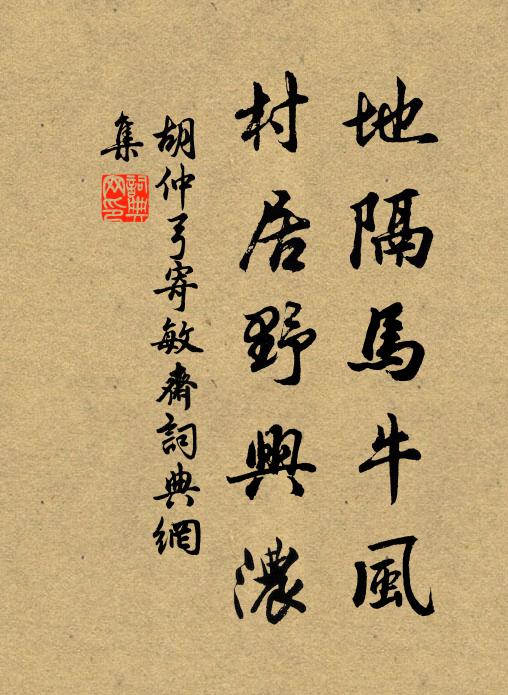 地隔馬牛風
村居野興濃
胡仲弓寄敏齋詞典網
集
詞典網印